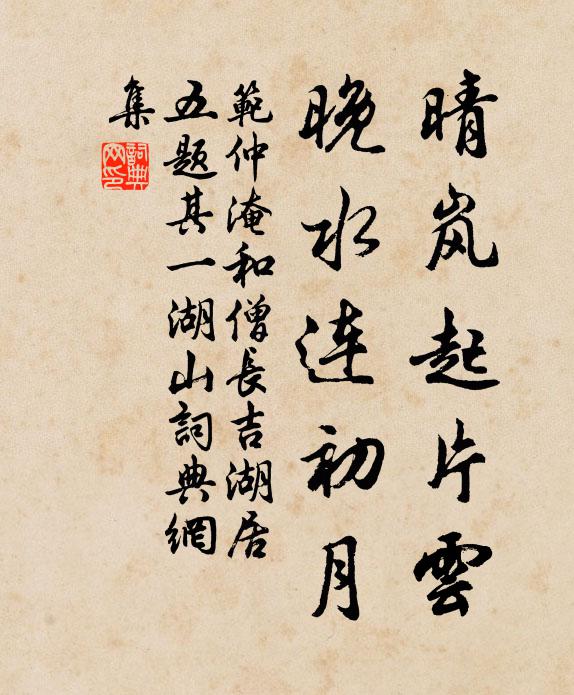 晴岚起片雲
晚水連初月
範仲淹和僧長吉湖居
五题其一湖山詞典網
集
詞典
网印